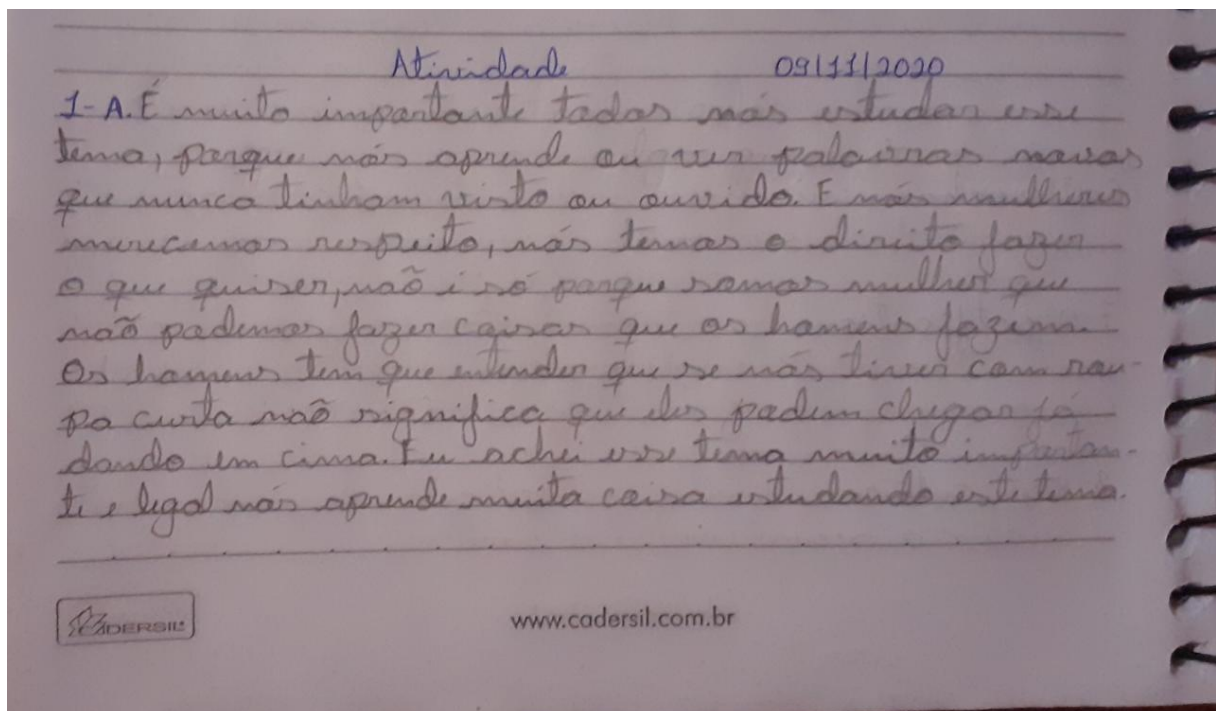 Atividade 09/11/2020
1-A. É muito importante todos nós estudar esse
tema, porque nós aprende ou ver palavras novas
que nunca tinham visto ou ouvido. E nós mulheres
merecemos respeito, nós temos o direito fazer
o que quiser, não é só porque somos mulher que
não podemos fazer coisas que os homens fazem.
Os homens tem que entender que se nós tiver com rou-
pa curta não significa que eles podem chegar já
dando em cima. Eu achei esse tema muito importan-
te e legal nós aprende muita coisa estudando este tema.
CADERSIL
www.cadersil.com.br